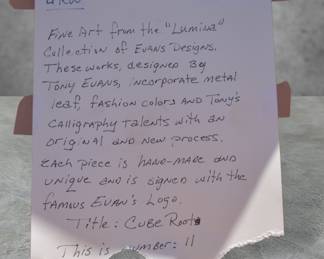 Fine Art from the "Lumina"
Collection of Evans Designs.
These works, designed By
Tony Evans, incorporate metal
leaf, fashion colors AND Tony's
calligraphy talents with an
original and new process.
Each piece is hand-made and
unique and is signed with the
famous Evan's Logo.
Title: Cube Roots
This is number: 11